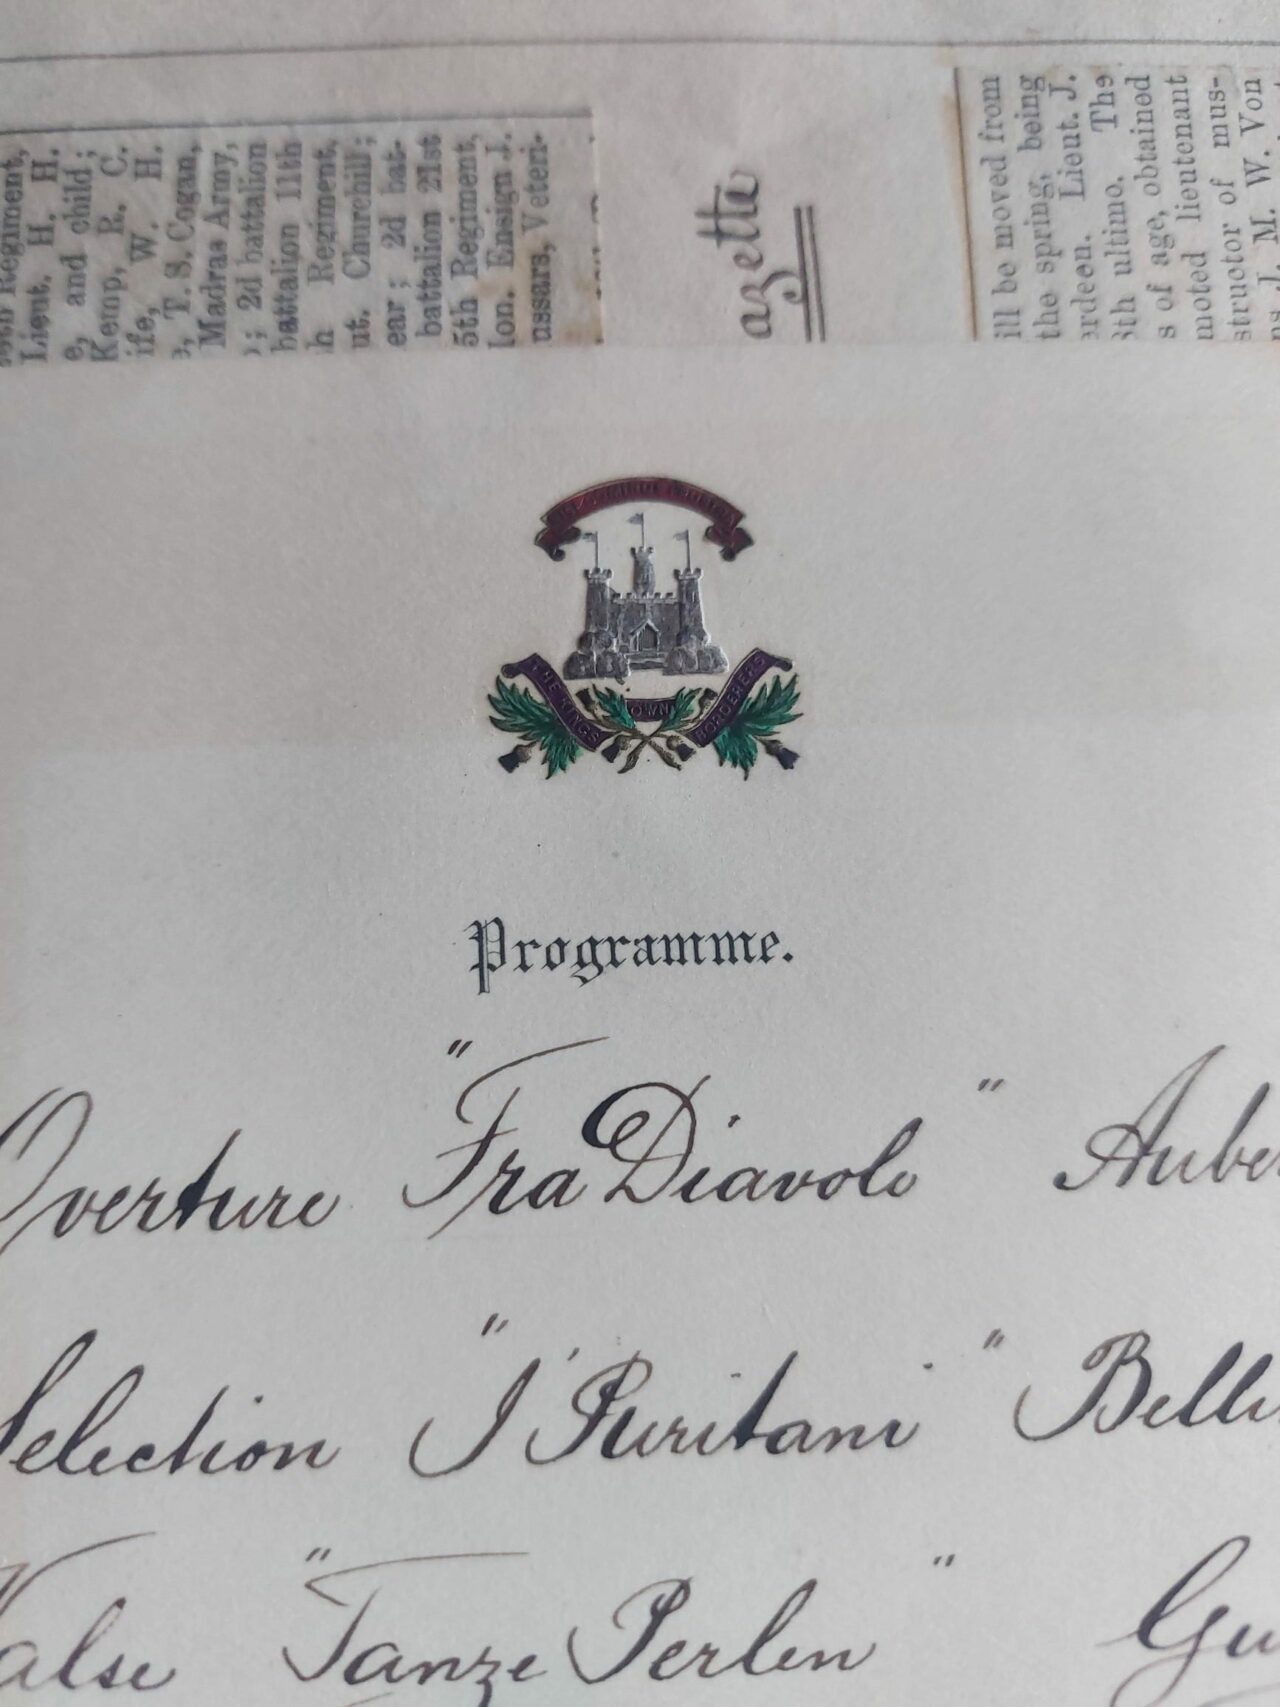 Regiment,
Lieut. H. H.
e, and child;
Kemp, R. C.
ife, W. H.
e, T. S. Cogan,
Madras Army,
); 2d battalion
battalion 11th
h Regiment,
ut. Churchill;
ear; 2d bat-
battalion 21st
5th Regiment,
lon. Ensign J.
ussars, Veteri-
azette
ill be moved from
the spring, being
erdeen. Lieut. J.
8th ultimo. The
s of age, obtained
moted lieutenant
structor of mus-
ns J. M. W. Von
THE KINGS OWN BORDERERS
Programme.
Overture "Fra Diavolo" Aube
Selection "I Puritani" Belli
Valse "Tanze Perlen" Gu